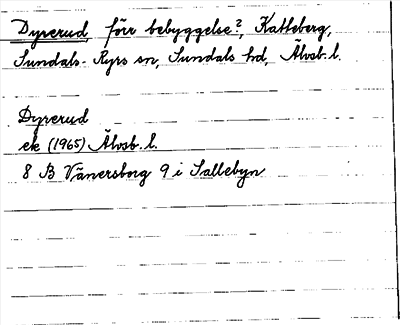 Dyverud, förr bebyggelse?, Katleberg,
Sundals-Ryrs sn, Sundals hd, Älvsb. l.
Dyverud
ek (1965) Älvsb. l.
8 B Vänersborg 9 i Sallebyn